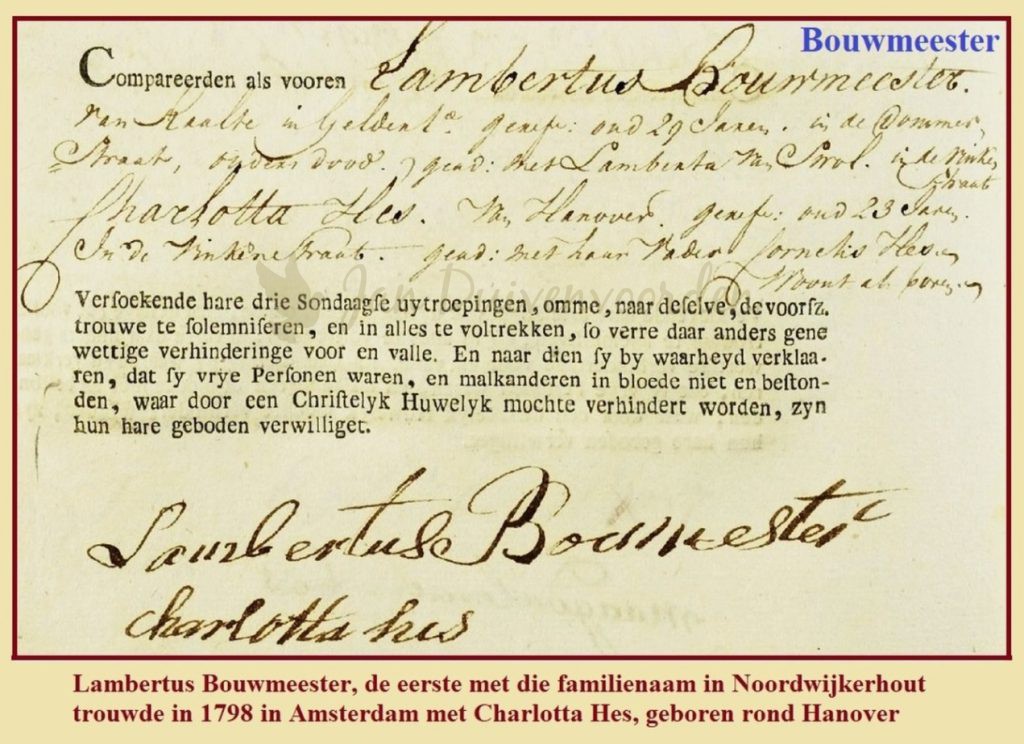 Bouwmeester
Compareerden als vooren Lambertus Bouwmeester.
van Raalte in Gelderlt. geref: oud 29 Jaren. in de Dommer
Straat, ouders dood. gead: met Lamberta van Swol. in de Vinke
Straat
Charlotta Hes. van Hanover. geref: oud 23 Jaren.
In de Vinkenstraat. gead: met haar Vader Cornelis Hes
Woont als boven
Jan Duivenvoorden
Verſoekende hare drie Sondaagſe uytroepingen, omme, naar deſelve, de voorſz.
trouwe te ſolemniſeren, en in alles te voltrekken, ſo verre daar anders gene
wettige verhinderinge voor en valle. En naar dien ſy by waarheyd verklaa-
ren, dat ſy vrye Perſonen waren, en malkanderen in bloede niet en beſton-
den, waar door een Chriſtelyk Huwelyk mochte verhindert worden, zyn
hun hare geboden verwilliget.
Lambertus Bouwmester
charlotta hes
Lambertus Bouwmeester, de eerste met die familienaam in Noordwijkerhout
trouwde in 1798 in Amsterdam met Charlotta Hes, geboren rond Hanover